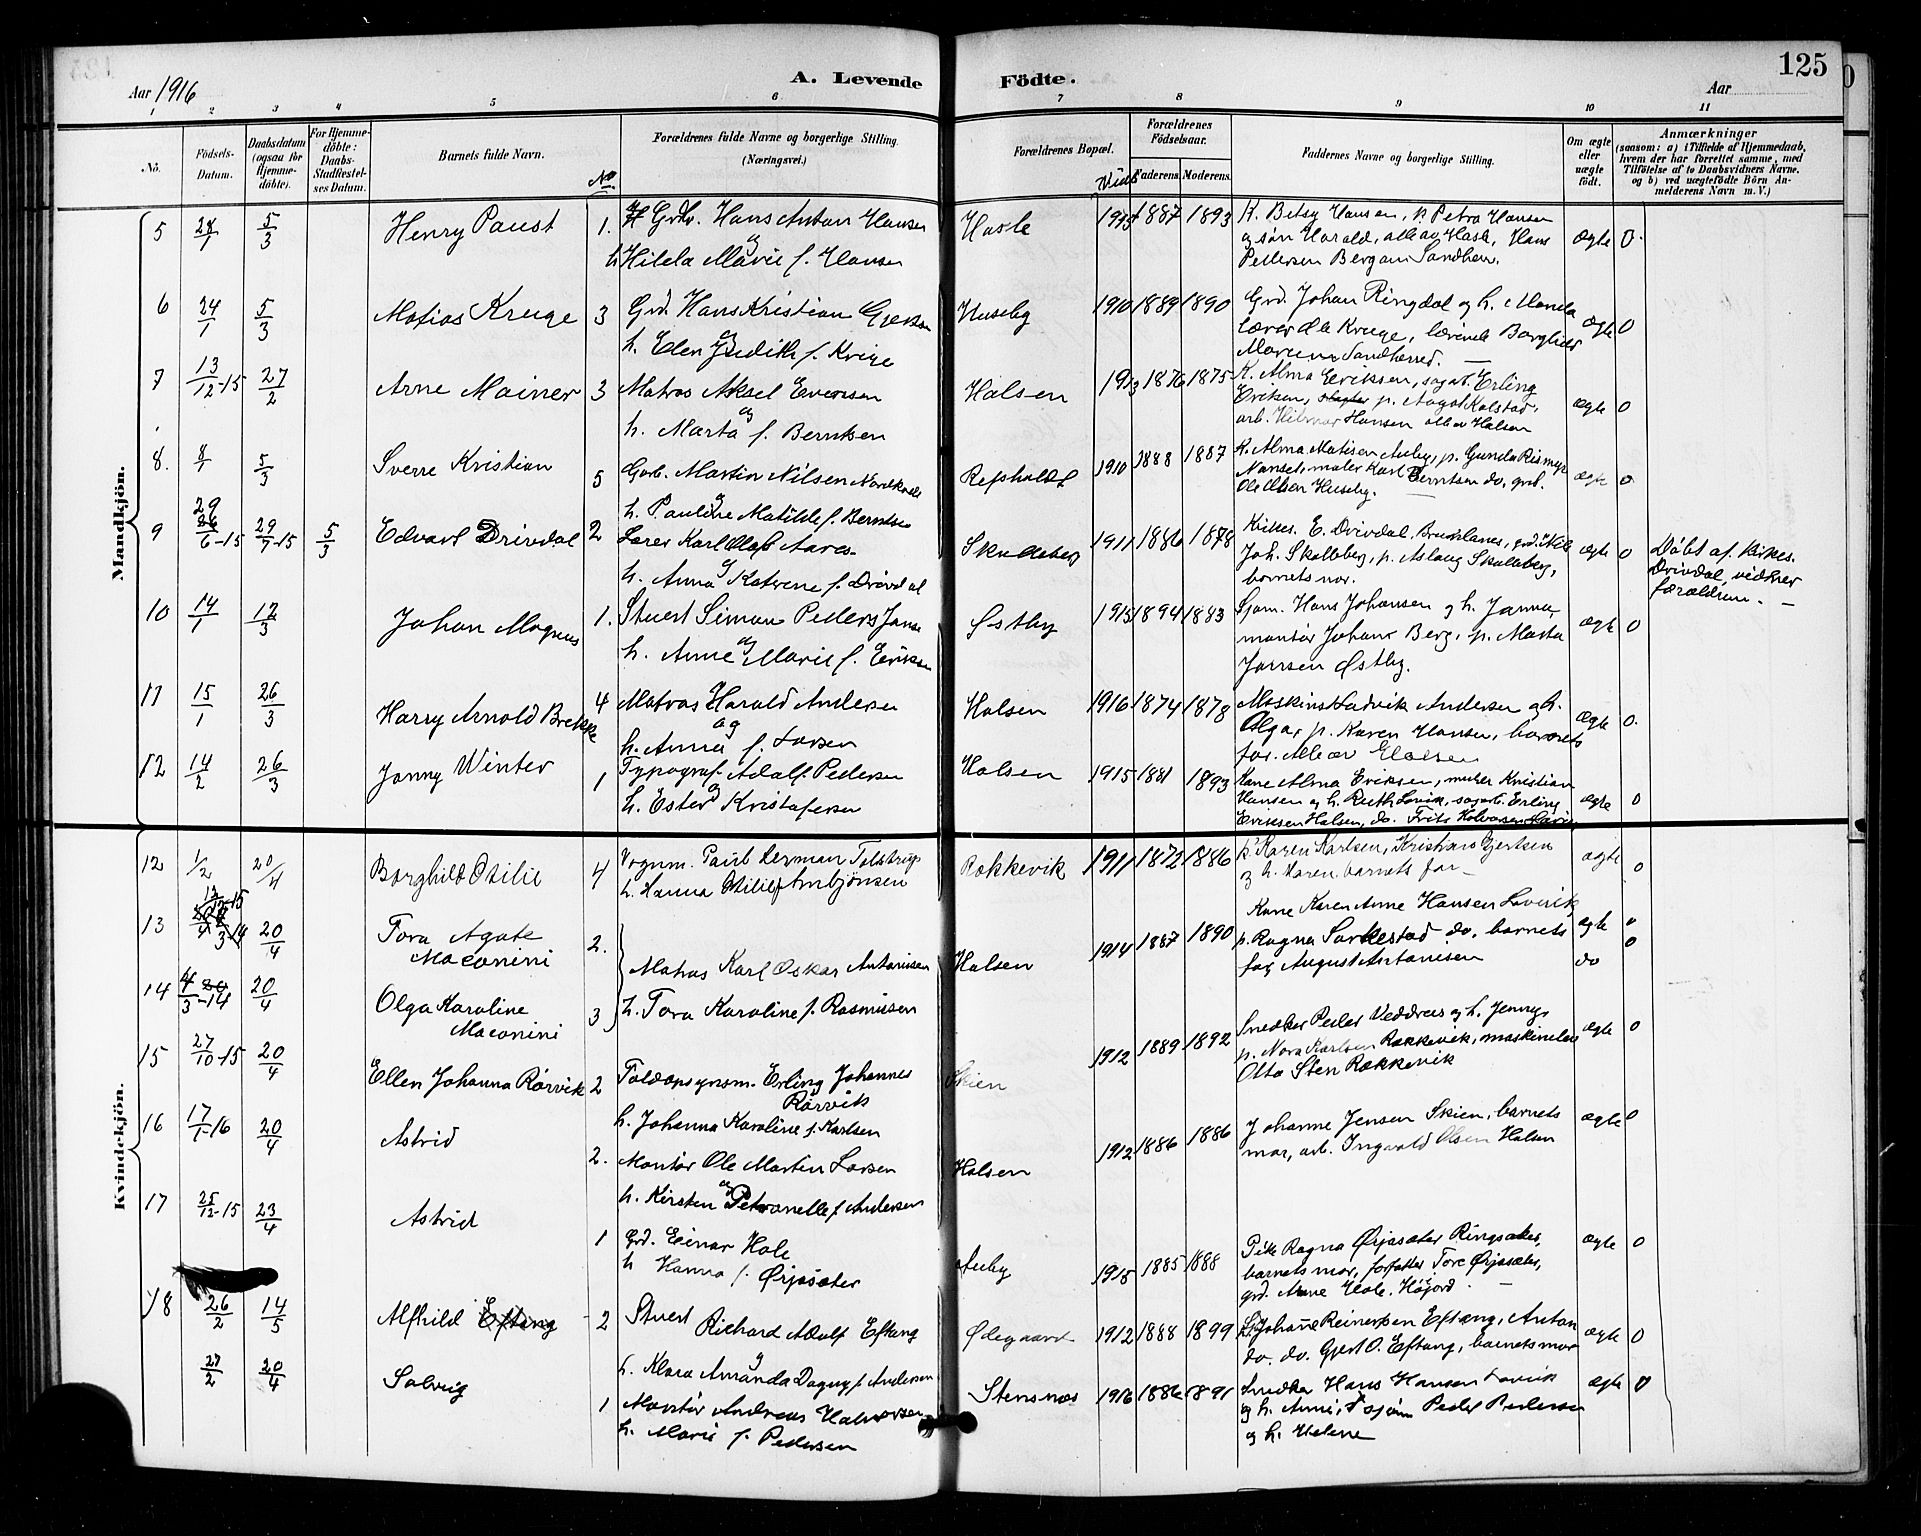 125
Aar 1916
A. Levende Födte.
Aar
1 2 3 4 5 6 7 8 9 10 11
No. Födsels-Datum. Daabsdatum (ogsaa for Hjemme-döbte). For Hjemme-döbte: Daabs-Stadfæstel-ses Datum. Barnets fulde Navn. No Forældrenes fulde Navne og borgerlige Stilling. (Næringsvei.) Forældrenes Bopæl. Viet Forældrenes Födselsaar. Faderens. Moderens. Faddernes Navne og borgerlige Stilling. Om ægte eller uægte födt. Anmærkninger (saasom: a) i Tilfælde af Hjemmedaab, hvem der har forrettet samme, med Tilföielse af to Daabsvidners Navne. og b) ved uægtefödte Börn An-melderens Navn m. V.)
Mandkjön.
5 24/1 5/3 Henry Paust 1. Grbr. Hans Anton Hansen Hasle 1915 1887 1893 K. Betsy Hansen, p. Petra Hansen ægte 0
og
h. Hilda Marie f. Hansen
og søn Harald, alle av Hasle, Hans
Pettersen Bergan Sandhem.
6 24/1 5/3 Matias Kruge 3 Grd. Hans Kristian Huseby 1910 1889 1890 Grd. Johan Ringdal og h. Manda ægte 0
og
h. Elen Judith f. Krüge
Sandherred.
7 13/12-15 27/2 Arne Mainer 3 Matros Aksel Evensen Halsen 1913 1876 1875 K. Alma Eriksen, sagarb. Erling ægte 0
og
h. Marta f. Berntsen
Eriksen, p. Aagot Kolstad,
arb. Hilmar Hansen alle av Halsen
8. 8/1 5/3 Sverre Kristian 5 Garb. Martin Nilsen Refsholdt 1910 1888 1887 K. Alma Matisen Auby, p. Gunda Rismyr ægte 0
og
h. Pauline Matilde f. Berntsen
Nanset, maler Karl Berntsen do, grd.
Ole Olsen Huseby.
9 29/6-15 29/7-15 5/3 Edvart Drivdal 2 Lærer Karl Olaf Aares Skalleberg 1911 1886 1878 Kirkes. E. Drivdal, Brunlanes, grd. Nils ægte 0 Döbt af Kirkes.
og
h. Anna Katrine f. Drivdal
Joh. Skalleberg, p. Aslaug Skalleberg,
barnets mor.
Drivdal, vidner
forældrene.
10 14/1 12/3 Johan Magnus 1. Stuert Simon Peders Jansen Østby 1915 1894 1883 Sjøm. Hans Johansen og h. Janna, ægte 0
og
h. Anne Marie f. Eriksen
montör Johans Berg, p. Marta
Jansen Østby.
11 15/1 26/3 Harry Arnold Brekke 4 Matros Harald Andersen Halsen 1916 1874 1878 Maskinst Ludvik Andersen og h. ægte 0
og
h. Anna f. Larsen
Olga, p. Karen Hansen, barnets
far. Alle av Halsen
12 14/2 26/3 Jonny Winter 1 Typograf Adolf Pedersen Halsen 1915 1881 1893 Kone Alma Eriksen, murer Kristian ægte 0
og
h. Ester Kristofersen
Hansen og h. Ruth Lovik, sagarb. Erling
Eriksen Halsen, do. Frits
Kvindekjön.
12 1/2 20/4 Borghild Otilie 4 Vognm. Paul Herman Tolstrup Rækkevik 1911 1872 1886 p. Karen Karlsen, Kristians Gjertsen ægte 0
h. Hanna Otilie f. Arnbjönsen
og h. Karen, barnets far
13 20/4 Tora Agate Maconini 2. Matros Karl Oskar Antonisen Halsen 1914 1887 1890 Kone Karen Anne Hansen Lovik, ægte 0
p. Ragna Sørkestad do, barnets
far August Antonisen do 0
14 4/3-14 20/4 Olga Karoline Maconini 3 h. Tora Karoline f. Rasmussen
15 27/10-15 20/4 Ellen Johanna Rörvik 2 Toldopsynsm. Erling Johannes Rörvik Skien 1912 1889 1892 Snedker Peder Veddres og h. Jenny, ægte 0
h. Johanna Karoline f. Karlsen
p. Nora Karlsen Rækkevik, maskinelev
Otto Sten Rækkevik
16 17/1-16 20/4 Astrid 2. Montör Ole Martin Larsen Halsen 1912 1886 1886 Johanne Jensen Skien, barnets ægte 0
og
h. Kirsten Petronelle f. Andersen
mor, arb. Ingvald Olsen Halsen
17 25/12-15 23/4 Astrid 1 Grd. Einar Hole Auby 1915 1885 1888 Pike Ragna Ørjasæter Ringsaker, ægte 0
h. Hanna f. Ørjasæter
barnets mor, forfatter Tore Ørjasæter,
grd. Arne Hole, Höjord
18 26/2 14/5 Alfhild Eftang 2 Stuert Richard Adolf Eftang Ødegaard 1912 1888 1899 Johanne Reinertsen Eftang, Anton ægte 0
og
h. Klara Amanda Dagny f. Andersen
do. do. Gjert O. Eftang, barnets mor
27/2 20/4 Solveig 1 Montör Andreas Halvorsen Stensnæs 1916 1886 1891 Snedker Hans Hansen Lovik ægte 0
h. Marie f. Pedersen
og h. Anne, Peder Pedersen
og h. Helene